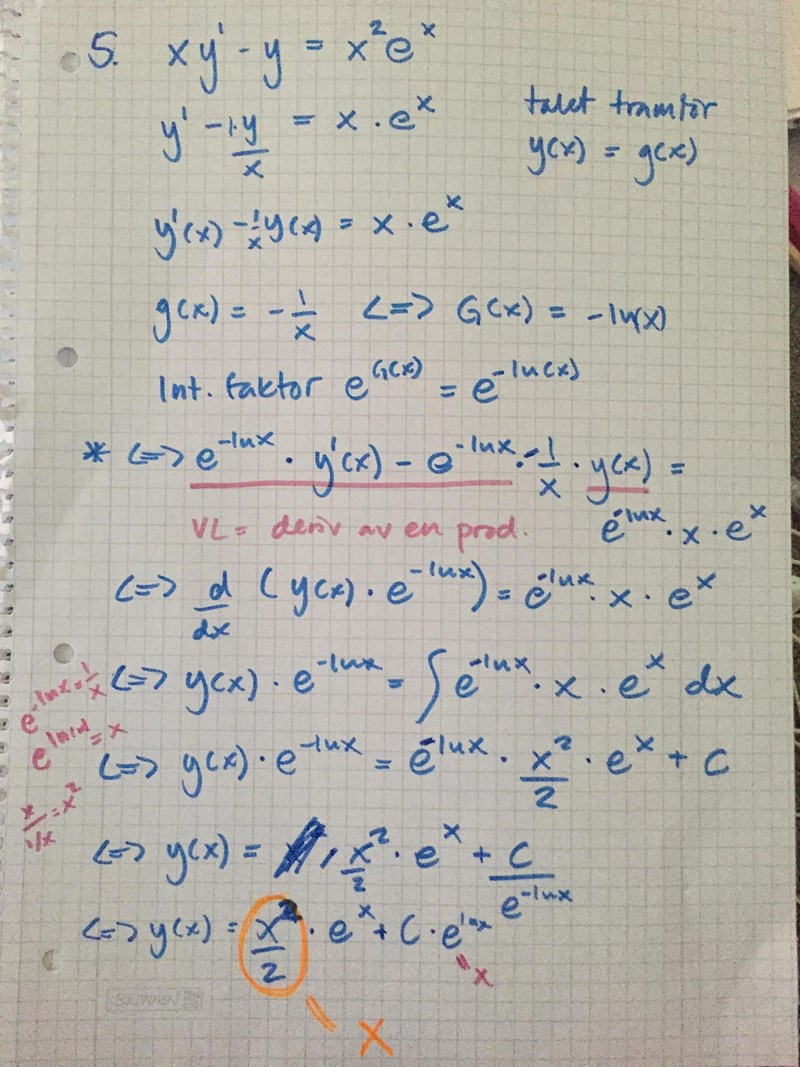 5. xy' - y = x²eˣ
y' - 1·y/x = x · eˣ
talet framför
y(x) = g(x)
y'(x) - 1/x y(x) = x · eˣ
g(x) = - 1/x <=> G(x) = -ln(x)
Int. faktor e^G(x) = e^-ln(x)
* <=> e^-lnx · y'(x) - e^-lnx · - 1/x · y(x) =
e^-lnx · x · eˣ
VL = deriv av en prod.
<=> d/dx (y(x) · e^-lnx) = e^-lnx · x · eˣ
<=> y(x) · e^-lnx = ∫ e^-lnx · x · eˣ dx
e^-lnx = 1/x
e^ln(x) = x
<=> y(x) · e^-lnx = e^-lnx · x²/2 · eˣ + C
x/1/x = x²
<=> y(x) = x²/2 · eˣ + C/e^-lnx
<=> y(x) = x²/2 · eˣ + C · e^lnx
= x
= x